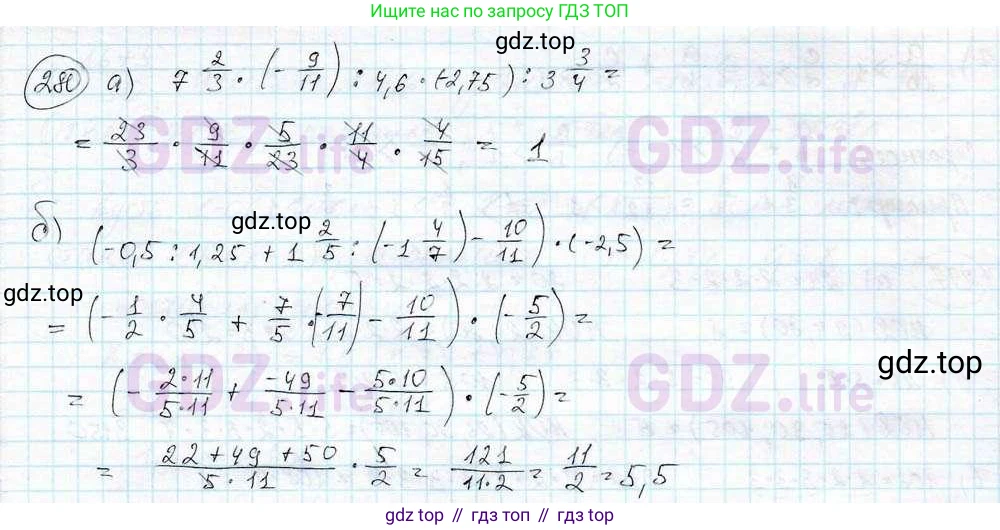 Ищите по запросу ГДЗ ТОП
gdz.top
280 а) 7 2/3 · (- 9/11) : 4,6 · (-2,75) : 3 3/4 =
= 23/3 · 9/11 · 5/23 · 11/4 · 4/15 = 1
GDZ.life GDZ.life
gdz.top
б) (-0,5 : 1,25 + 1 2/5 : (-1 4/7) - 10/11) · (-2,5) =
gdz.top
= (- 1/2 · 4/5 + 7/5 · (- 7/11) - 10/11) · (- 5/2) =
gdz.top
= (- 2·11/5·11 + -49/5·11 - 5·10/5·11) · (- 5/2) =
GDZ.life GDZ.life
= 22+49+50/5·11 · 5/2 = 121/11·2 = 11/2 = 5,5
gdz.top // гдз топ // gdz.top